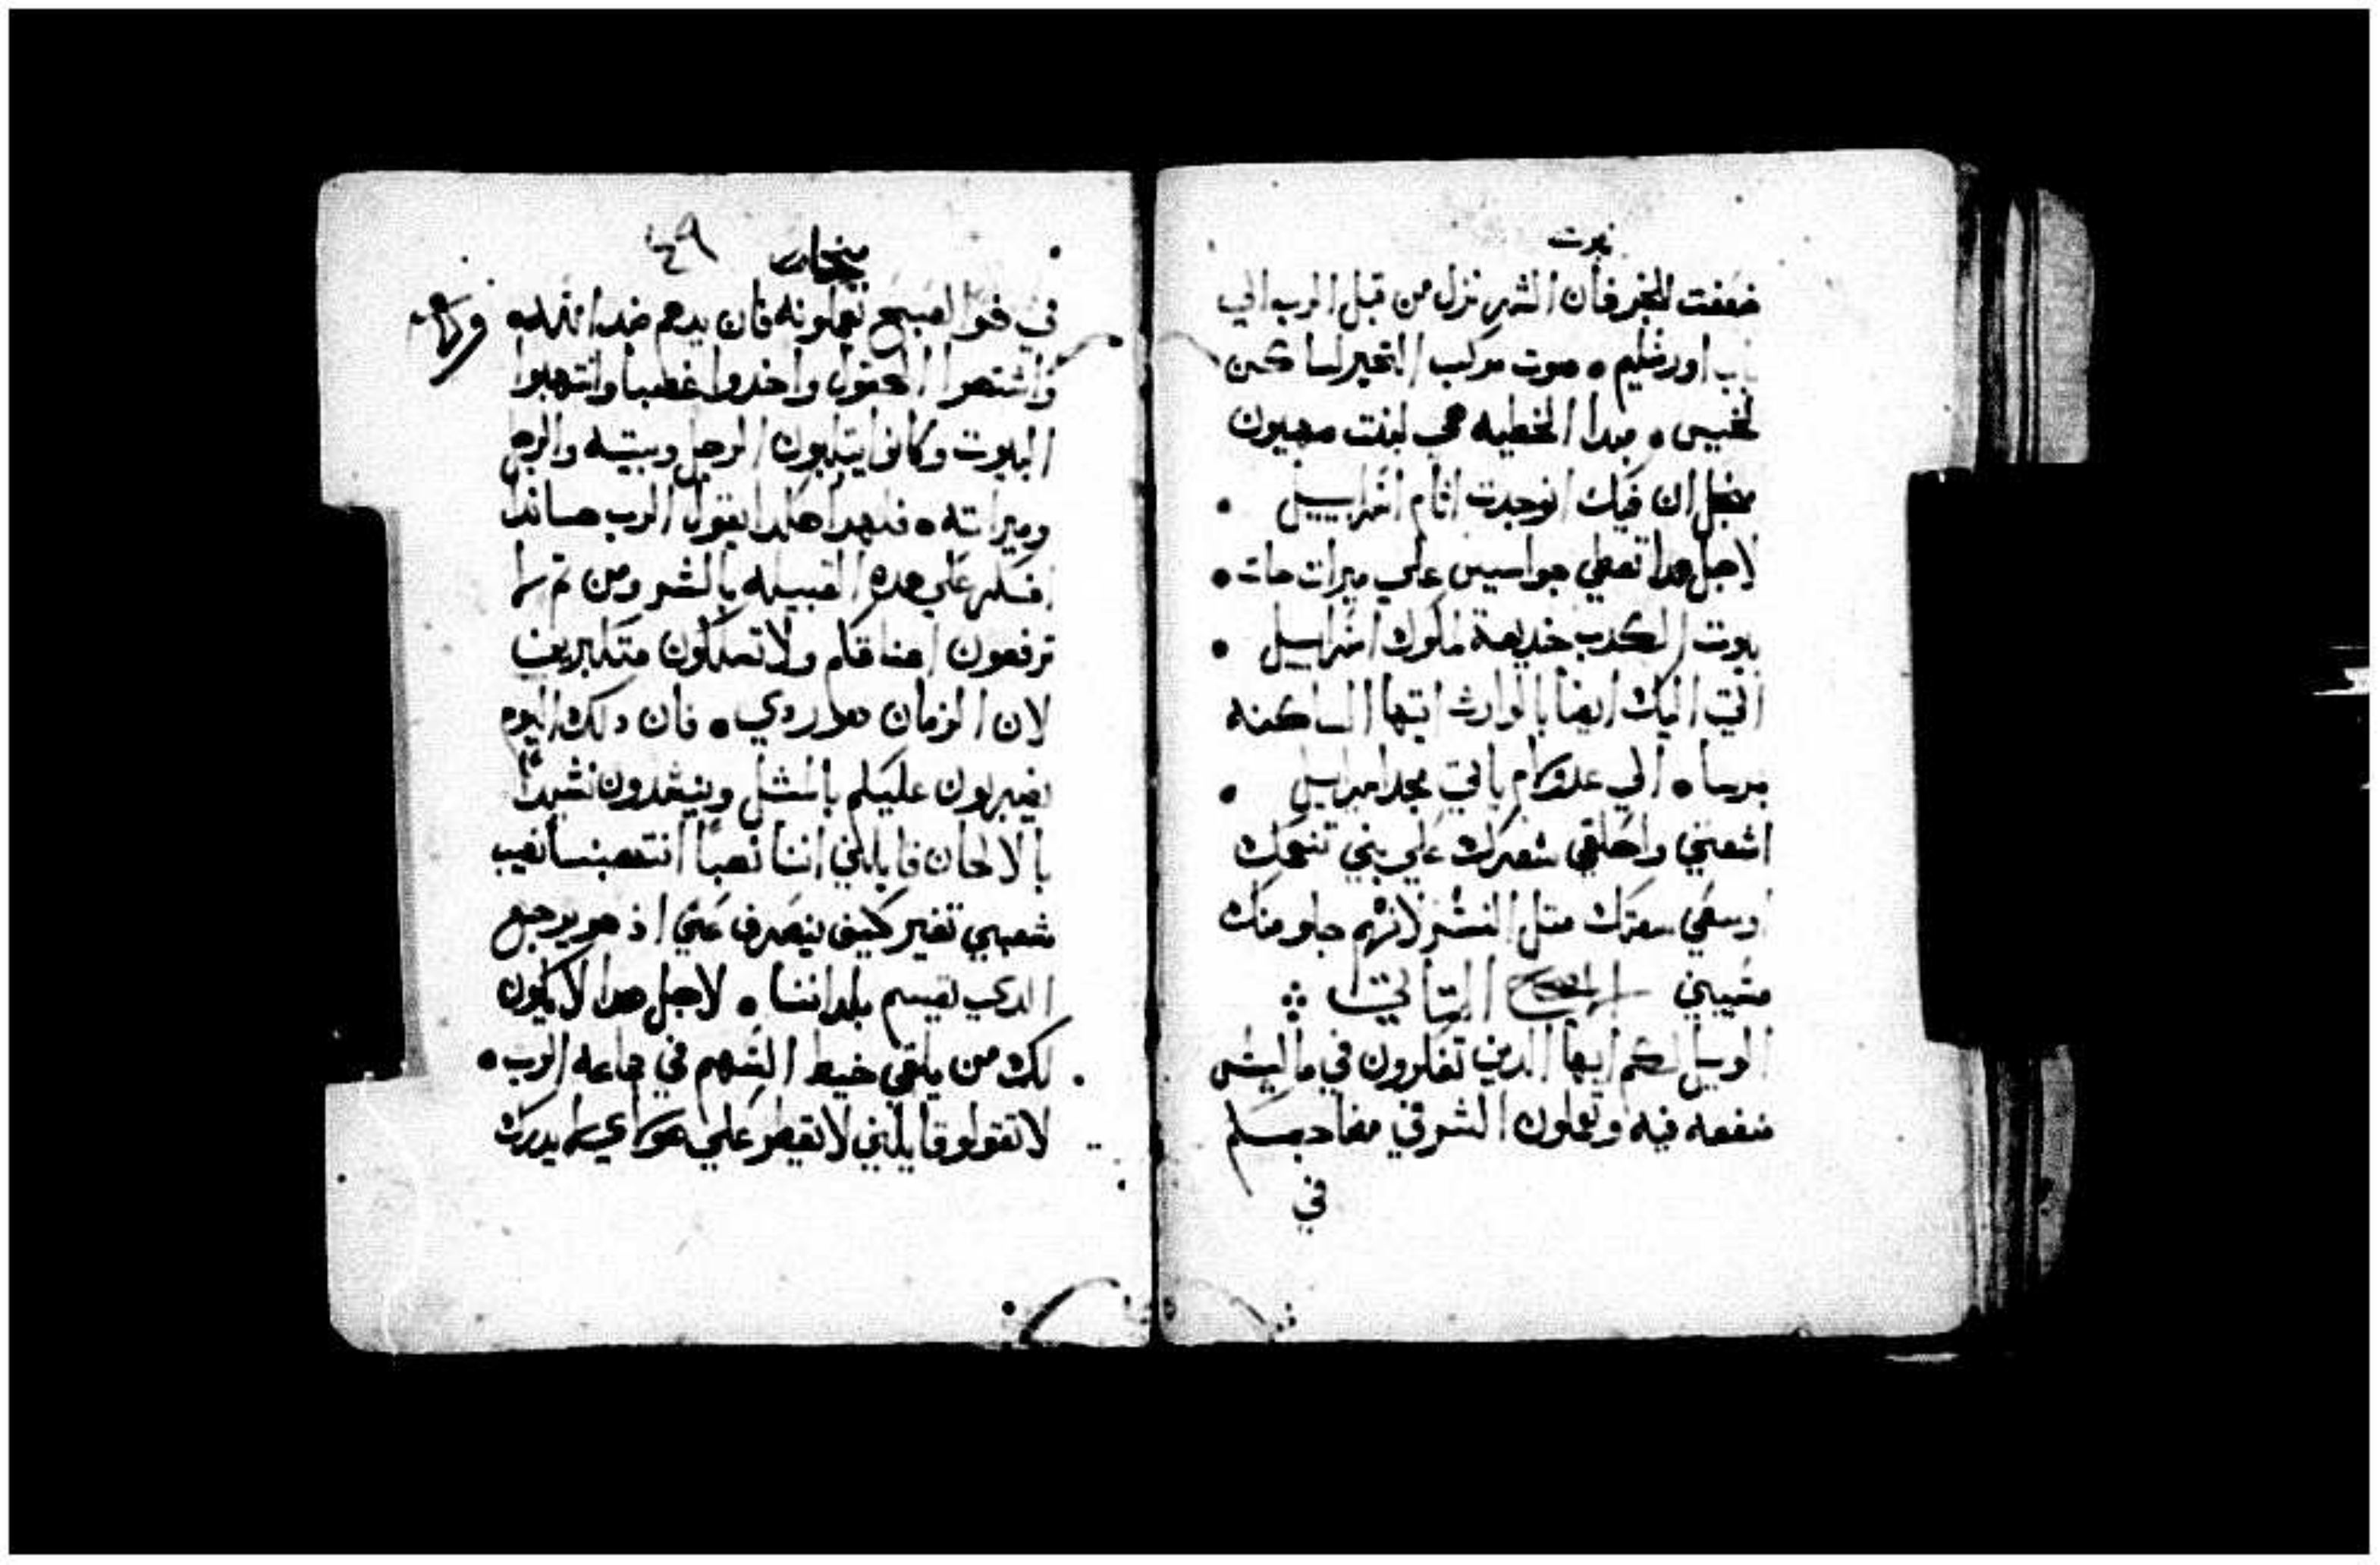 نبوت
ضعفت للخير فأن الشر نزل من قبل الرب الي
باب اورشليم • صوت مركب الخير لساكن
لخيس • مبدا الخطيه هي لبنت صهيون
منجل ان فيك انوجدت اثام اسراييل •
لاجل هدا تعطي جواسيس علي ميرات حات •
بيوت الكدب خديعة ملوك اسراييل •
اتي اليك ايضا بالوارث ايتها الساكنه
مرسا • الي عدولام ياتي مجد اسراييل •
اشعني واحلقي شعرك علي بني تنعمك
اوسعي معرتك متل النسر لانهم جلو منك
مسيين الاصحاح التاني
الويل لكم ايها الدين تفكرون في ما ليس
منفعه فيه وتعملون الشر في مضاجعكم
في
ميخا ٤٩
في ضو الصبح تعملونه فان يدهم ضد الله
واشتهوا الحقول واخدوا غصبا وانتهبوا
البيوت وكانوا يتلبون الرجل وبيته والرجل
وميراته • فلهدا هكدا يقول الرب هاندا
افكر علي هده القبيله بالشر ومن تم لا
ترفعون اعناقكم ولا تسلكون متكبرين
لان الزمان هو ردي • فان دلك اليوم
يضربون عليكم بالمثل وينشدون نشيدًا
بالالحان قايلين اننا نهبًا انتهبنا نصيب
شعبي تغير كيف ينصرف عني اذ هو يرجع
الدي يقيسم بلداننا • لاجل هدا لا يكون
لك من يلقي خيط السهم في جماعه الرب •
لا تقولو قايلين لا تقطر علي هولاي لا يدرك